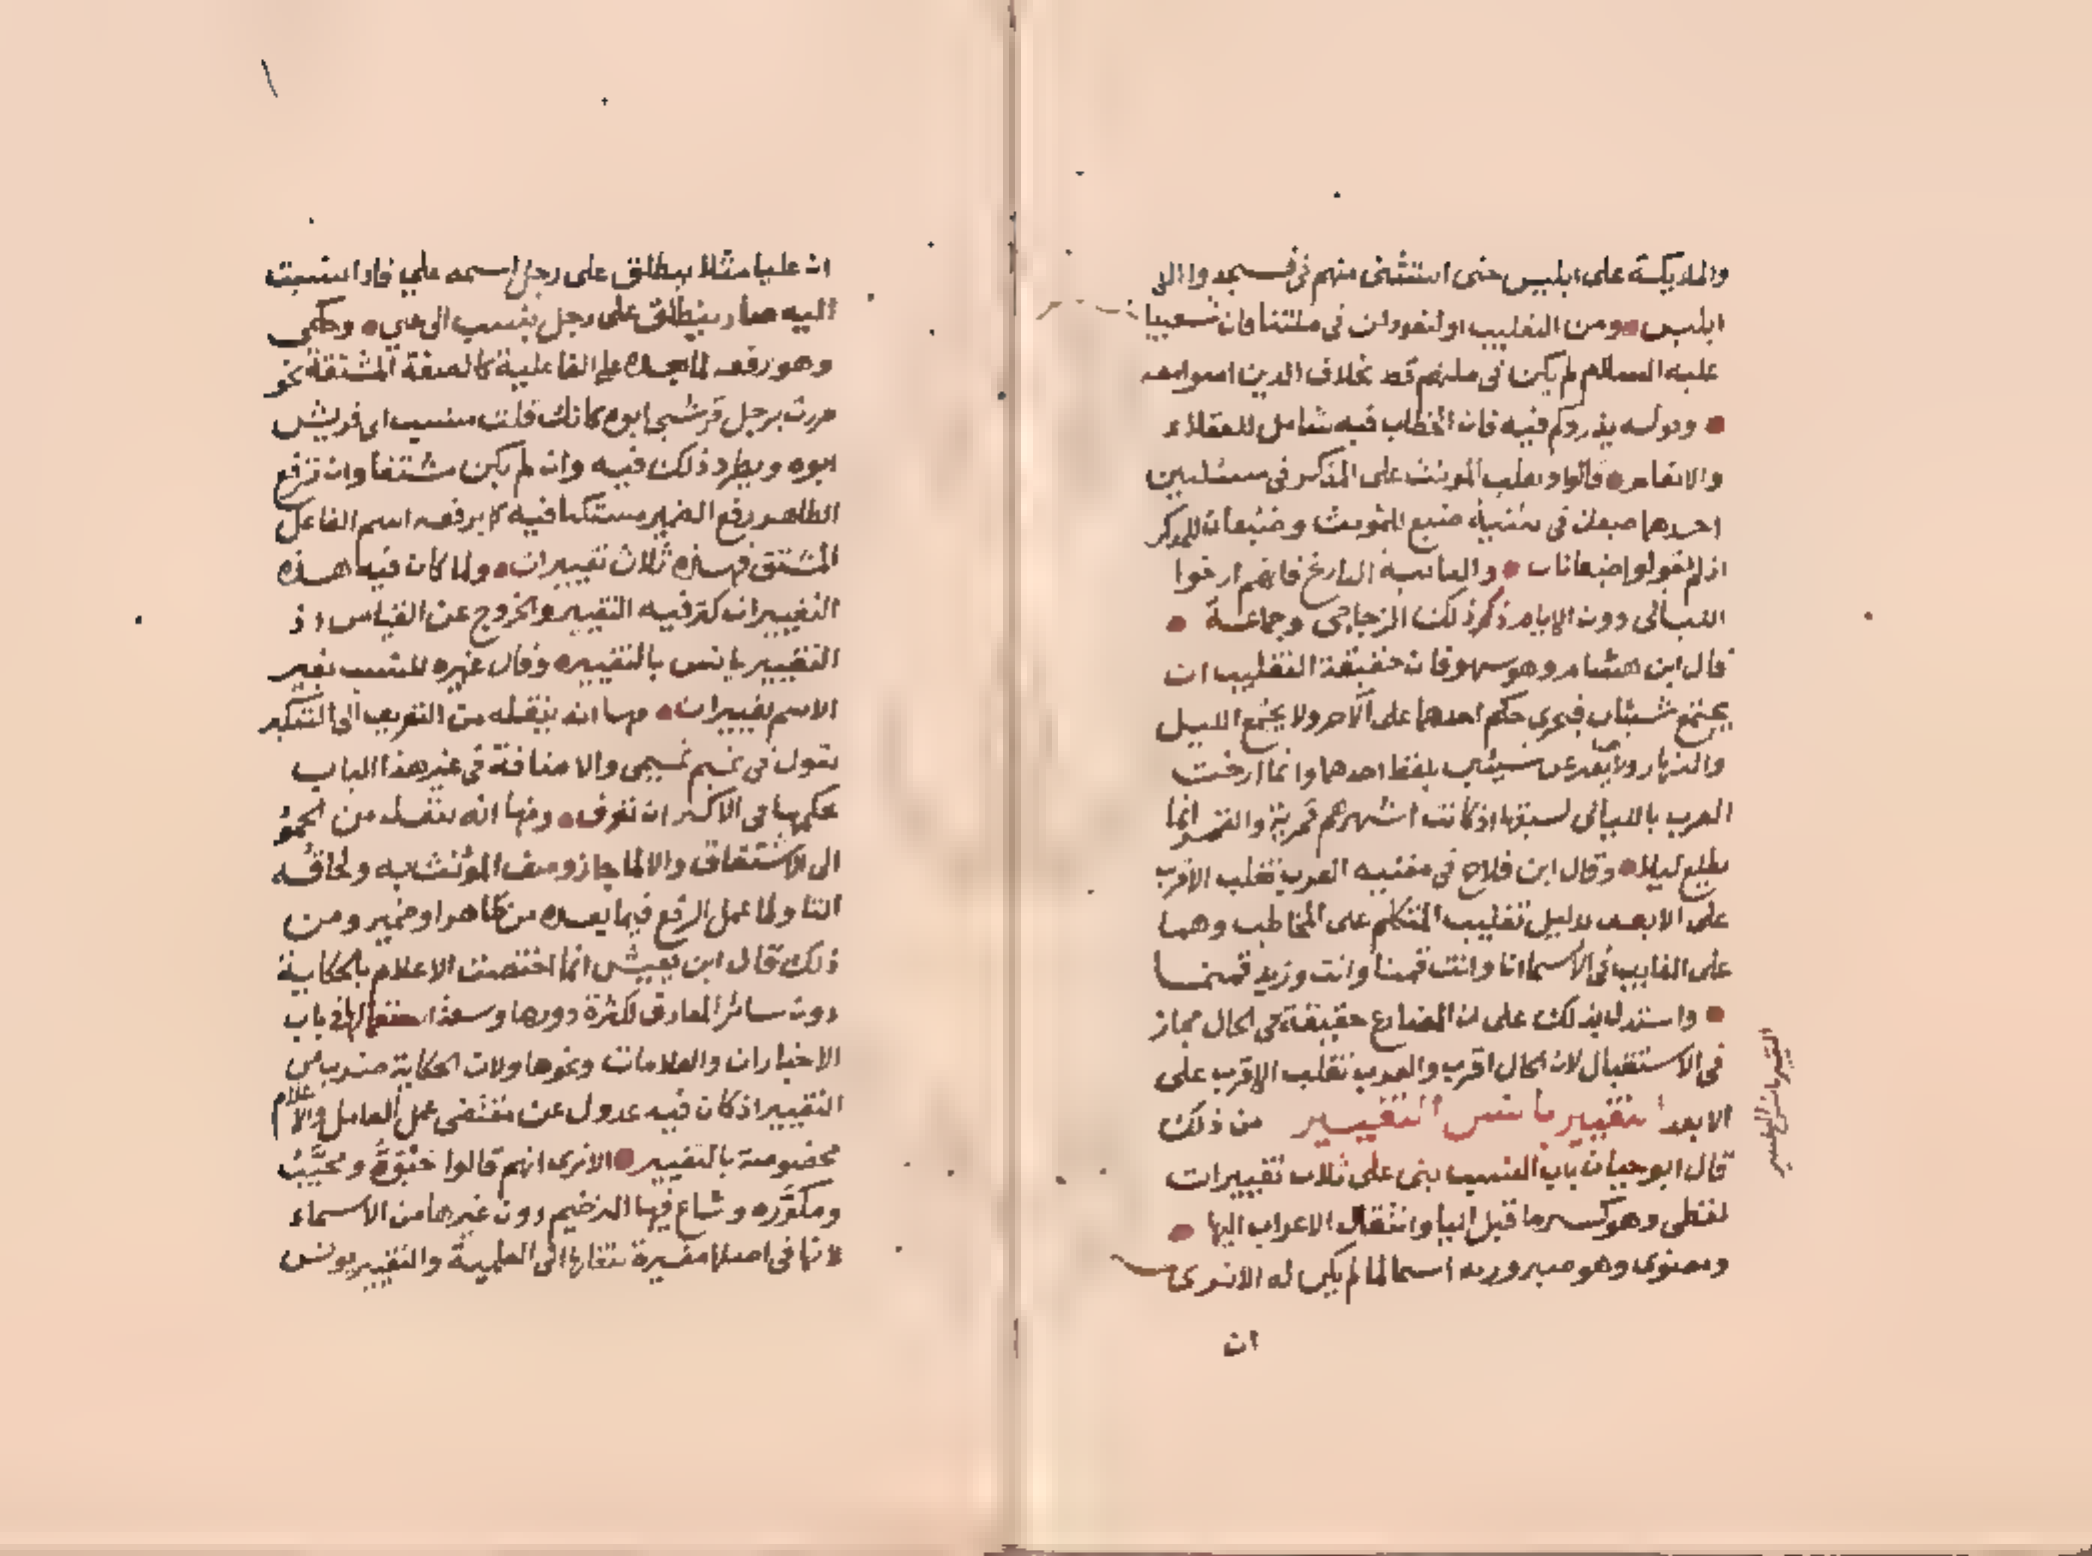 والملايكة على ابليس حتى استثنى منهم في فسجدوا الا
ابليس ومن التغليب او لتعودن في ملتنا فان شعيبا
عليه السلام لم يكن في ملتهم قط بخلاف الذين امنوا معه
وقوله يذروكم فيه فان الخطاب فيه شامل للعقلاء
والانعام قالوا ويغلب المونث على المذكر في مسئلتين
احدهما ضبعان في تثنية ضبع للمونث وضبعان للمذكر
اذ لم يقولوا ضبعانان والثانية التاريخ فانهم ارخوا
الليالي دون الايام ذكر ذلك الزجاجي وجماعة
قال ابن هشام وهو سهو فان حقيقة التغليب ان
يجتمع شيئان فيجرى حكم احدهما على الآخر ولا يجتمع الليل
والنهار ولا يعبر عن شيئين بلفظ احدهما وانما ارخت
العرب بالليالي لسبقها اذ كانت اشهرهم قمرية والقمر انما
يطلع ليلا وقال ابن فلاح في مغنيه العرب تغلب الاقرب
على الابعد بدليل تغليب المتكلم على المخاطب وهما
على الغايب في الاسما انا وانت قمنا وانت وزيد قمتما
واستدل بذلك على ان المضارع حقيقة في الحال مجاز
في الاستقبال لان الحال اقرب والعرب تغلب الاقرب على
الابعد التغيير يانس التغيير من ذلك
قال ابو حيان باب النسب بنى على ثلاث تغييرات
لفظى وهو كسر ما قبل اليا وانتقال الاعراب اليها
ومعنوى وهو صيرورته اسما لما لم يكن له الا ترى
ان
التغيير يانس بالتغيير
ان عليا مثلا يطلق على رجل اسمه علي فاذا نسبت
اليه صار ينطلق على رجل ينسب الى علي وحكمى
وهو رفعه لما بعده على الفاعلية كالصفة المشتقة نحو
مررت برجل قرشي ابوه كانك قلت منتسب الى قريش
ابوه ويطرد ذلك فيه وان لم يكن مشتقا وان لم ترفع
الظاهر رفع الضمير مستكنا فيه كما يرفعه اسم الفاعل
المشتق فهذه ثلاث تغييرات ولما كان فيه هذه
التغييرات كثر فيه التغيير والخروج عن القياس اذ
التغيير يانس بالتغيير وقال غيره للنسب تغير
الاسم تغييرات منها انه ينقله من التعريف الى التنكير
تقول في تميم تميمي والاضافة في غير هذا الباب
حكمها في الاكثر ان تعرف ومنها انه ينقله من الجمود
الى الاشتقاق والا لما جاز وصف المؤنث به ولحاقه
التا ولما عمل الرفع فيما بعده من ظاهر او ضمير ومن
ذلك قال ابن يعيش انما اختصت الاعلام بالحكاية
دون سائر المعارف لكثرة دورها وسعة استعمالها في باب
الاخبارات والعلامات ونحوها ولان الحكاية ضرب من
التغيير اذ كان فيه عدول عن مقتضى عمل العامل والاعلام
مخصوصة بالتغيير الا ترى انهم قالوا حيوة ومحبب
ومكوزه وشاع فيها الترخيم دون غيرها من الاسماء
لانها في اصلها مغيرة بنقلها الى العلمية والتغيير يونس